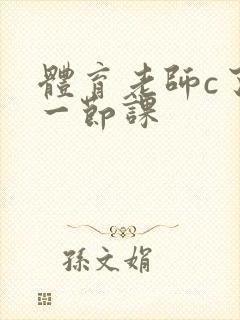 體育老師c了
一節課
孫文娟